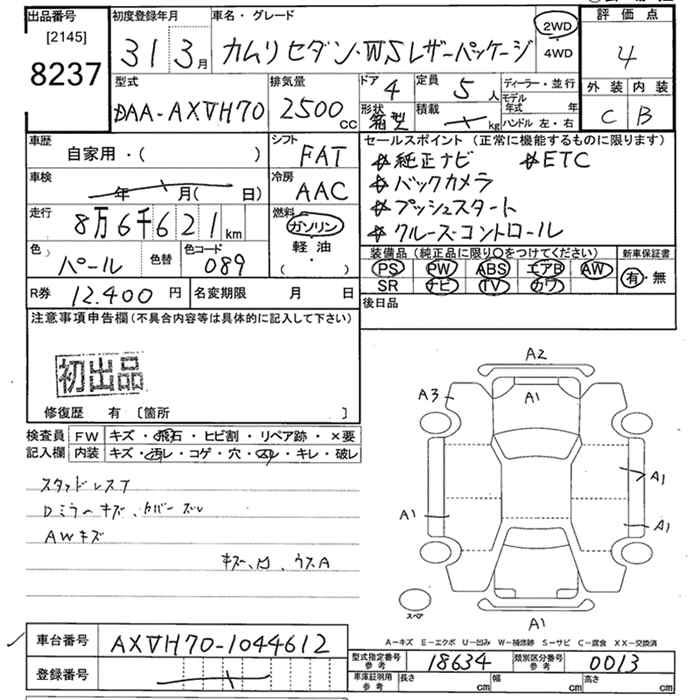 出品番号 初度登録年月 車名・グレード 評価点
[2145] 2WD
8237 31 3月 カムリセダン・WSレザーパッケージ 4WD 4
型式 排気量 ドア 4 定員 5人 ディーラー・並行 外装 内装
DAA-AXVH70 2500cc 形状 箱型 積載 kg モデル年式 年 C B
ハンドル 左・右
車歴 シフト セールスポイント (正常に機能するものに限ります)
自家用・( ) FAT 純正ナビ ETC
車検 冷房 バックカメラ
年 月( 日) AAC プッシュスタート
走行 燃料 クルーズコントロール
8万6千621km ガソリン
色 色替 色コード 軽油 装備品(純正品に限り○をつけてください) 新車保証書
パール 089 ( ・ ) PS PW ABS エアB AW 有・無
R券 12.400円 名変期限 月 日 SR ナビ TV カワ
注意事項申告欄(不具合内容等は具体的に記入して下さい) 後日品
初出品
修復歴 有 [箇所 ]
検査員 FW キズ・飛石・ヒビ割・リペア跡・×要
記入欄 内装 キズ・汚レ・コゲ・穴・スレ・キレ・破レ
スタッドレスT
Dミラーキズ、カバーズレ
AWキズ
キズ、凹、ウスA
A2
A3 A1
A1
A1 A1
スペア A1
A-キズ E-エクボ U-凹み W-補修跡 S-サビ C-腐食 XX-交換済
車台番号 AXVH70-1044612
登録番号
型式指定番号 参考 18634 類別区分番号 参考 0013
車庫証明用 参考 長さ cm 幅 cm 高さ cm